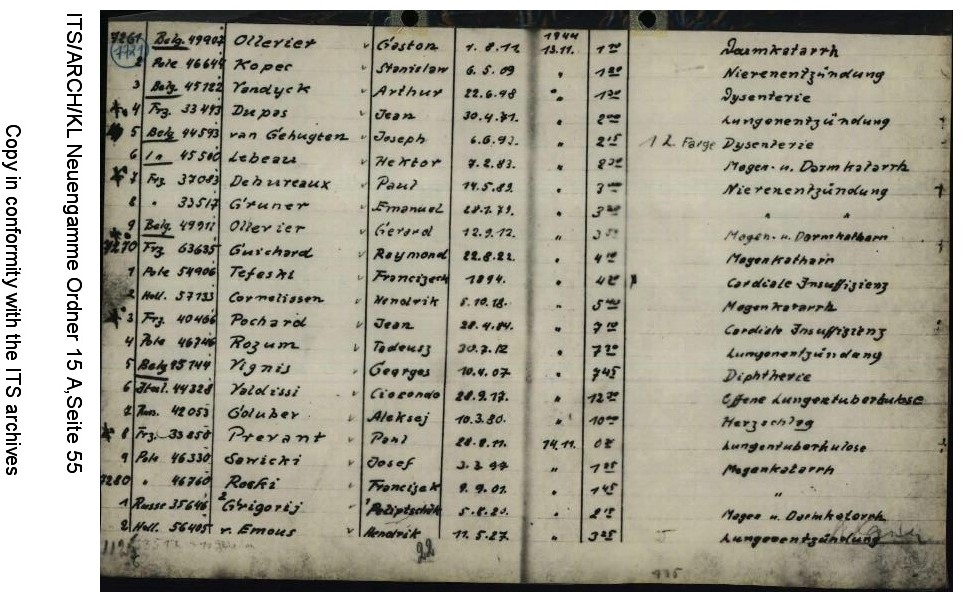 ITS/ARCH/KL Neuengamme Ordner 15 A, Seite 55
Copy in conformity with the ITS archives
1944
7261 Belg. 49907 Ollevier v Gaston 1. 8. 12 13.11. 1 Darmkatarrh
2 Pole 46644 Kopec v Stanislaw 6. 5. 09 " Nierenentzündung
3 Belg. 45122 Vandyck v Arthur 22.6.98 " Dysenterie
4 Frz. 33493 Dupas v Jean 30.4.71. " 2 Lungenentzündung
5 Belg 44593 van Gehugten v Joseph " 2 15 12 Farge Dysenterie
6 45500 Lebeau v Hektor 7.2.83. " Magen- u. Darmkatarrh
7 Frz. 37083 Dehureaux v Paul " 3 Nierenentzündung
8 " 33517 Gruner v Emanuel " 3 " "
9 Belg. 49911 Ollevier v Gerard 12.9.12. " 3 Magen- u. Darmkatharr
7270 Frz 63635 Guichard v Raymond 22.8.22. " 4 Magenkatharr
1 Pole 54906 Tefeski v Franciszek 1894. " 4 Cardiale Insuffizienz
2 Holl. 57133 Cornelissen v Hendrik 5.10.18. " 5 Magenkatarrh
3 Frz. 40466 Pochard v Jean 28.4.84. " 7 Cardiale Insuffizienz
4 Pole 46746 Rozum v Tadeusz " 7 Lungenentzündung
5 Belg Vignis v Georges 10.4.07. " 7 45 Diphtherie
6 Ital. 44328 Valdissi v Giocondo " 12 Offene Lungentuberkulose
7 42053 Goluber v Aleksej 10.3.20. " 10 Herzschlag
8 Frz. 33850 Prevant v Paul 14.11. 0 Lungentuberkulose
9 Pole 46330 Sawicki v Josef " 1 Magenkatarrh
7280 " 46760 Roski v Francisek 9. 9. 01. " 1 45 "
1 Russe 35646 2 Grigorij 1 5.8.20. " 2 Magen u. Darmkatarrh
2 Holl. 56405 v. Emous v Hendrik 11.5.27. " 3 25 Lungenentzündung
22